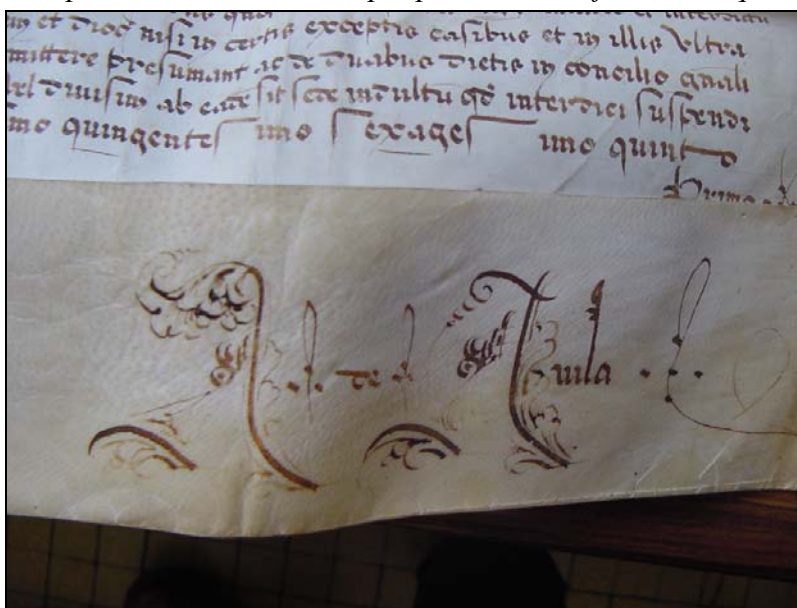 et dioc nisi in certis exceptis casibus et in illis vltra
mittere presumant ac te duabus dietis in concilio gnali
vel diuisim ab eade sit sede indultu qd interdici suspendi
mo quingentesimo sexagesimo quinto
Primo
A. de Auila